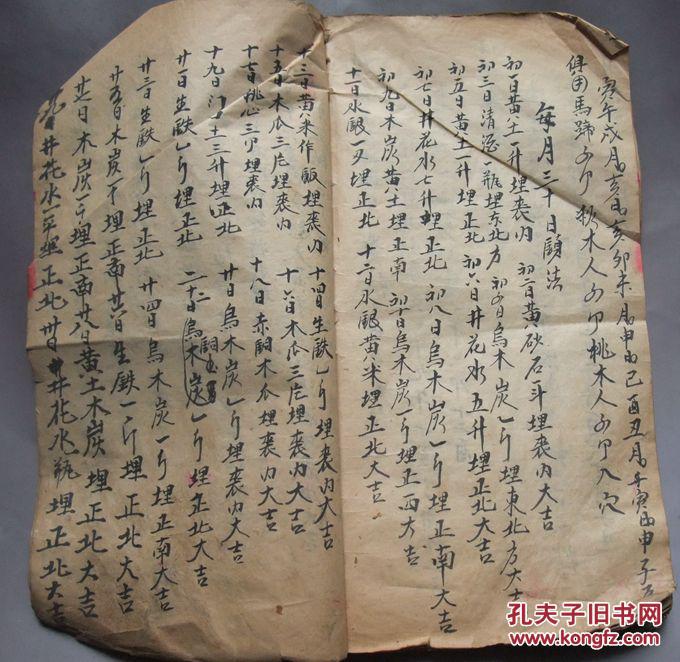 寅午戌月亥日亥卯未月申日巳酉丑月寅日申子
俱用馬蹄 秋木人 桃木人 入穴
每月三十日鎮法
初一日黃土一升埋喪內 初二日黃砂石一斗埋喪內大吉
初三日清酒一瓶埋东北方 初四日烏木炭一斤埋東北方大吉
初五日黃土一升埋正北 初六日井花水五升埋正北大吉
初七日井花水七升埋正北 初八日烏木炭一斤埋正南大吉
初九日木炭黃土埋正南 初十日烏木炭一斤埋正西大吉
十一日水銀一 埋正北 十二日水銀黃米埋正北大吉
十三日黃米作飯埋喪內 十四日生鉄一斤埋喪內大吉
十五日木瓜三片埋喪內 十六日木瓜三片埋喪內大吉
十七日桃心三 埋喪內 十八日赤 木瓜埋喪內大吉
十九日门土三升埋正北 廿日烏木炭一斤埋喪內大吉
廿一日生鉄一斤埋正北 二十二日烏木炭一斤埋正北大吉
廿三日生鉄一斤埋正北 廿四日烏木炭一斤埋正南大吉
廿五日木炭一斤埋正南 廿六日生鉄一斤埋正北大吉
廿七日木炭一斤埋正南 廿八日黃土木炭埋正北大吉
井花水一 埋正北 卅日井花水 瓶埋正北大吉
孔夫子旧书网
www.kongfz.com